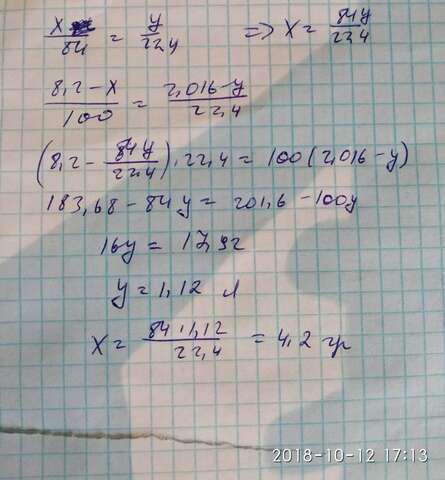 x/84 = y/22,4 => x = 84y/22,4
8,2-x/100 = 2,016-y/22,4
(8,2 - 84y/22,4) · 22,4 = 100(2,016-y)
183,68 - 84y = 201,6 - 100y
16y = 17,92
y = 1,12 л
x = 84·1,12/22,4 = 4,2 гр
2018-10-12 17:13